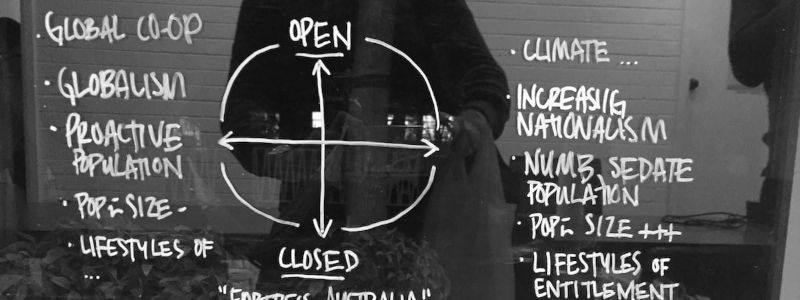 · GLOBAL CO-OP
· GLOBALISM
· PROACTIVE
POPULATION
· POPⁿ SIZE -
· LIFESTYLES OF
...
OPEN
CLOSED
"FORTRESS AUSTRALIA"
· CLIMATE ...
· INCREASIIG
NATIONALISM
· NUMB, SEDATE
POPULATION
· POPⁿ SIZE +++
· LIFESTYLES OF
ENTITLEMENT